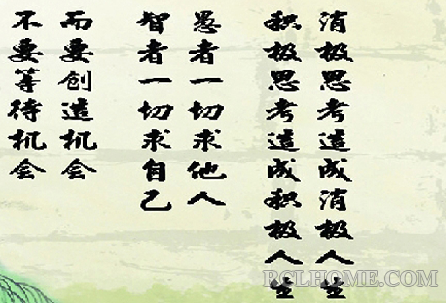 不要等待机会
而要创造机会
智者一切求自己
愚者一切求他人
积极思考造成积极人生
消极思考造成消极人生
RCLHOME.COM